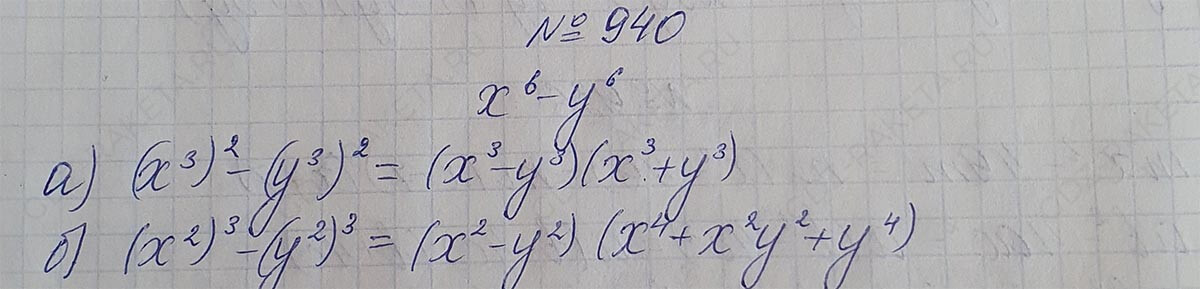 № 940
x⁶ - y⁶
а) (x³)² - (y³)² = (x³ - y³)(x³ + y³)
б) (x²)³ - (y²)³ = (x² - y²) (x⁴ + x²y² + y⁴)